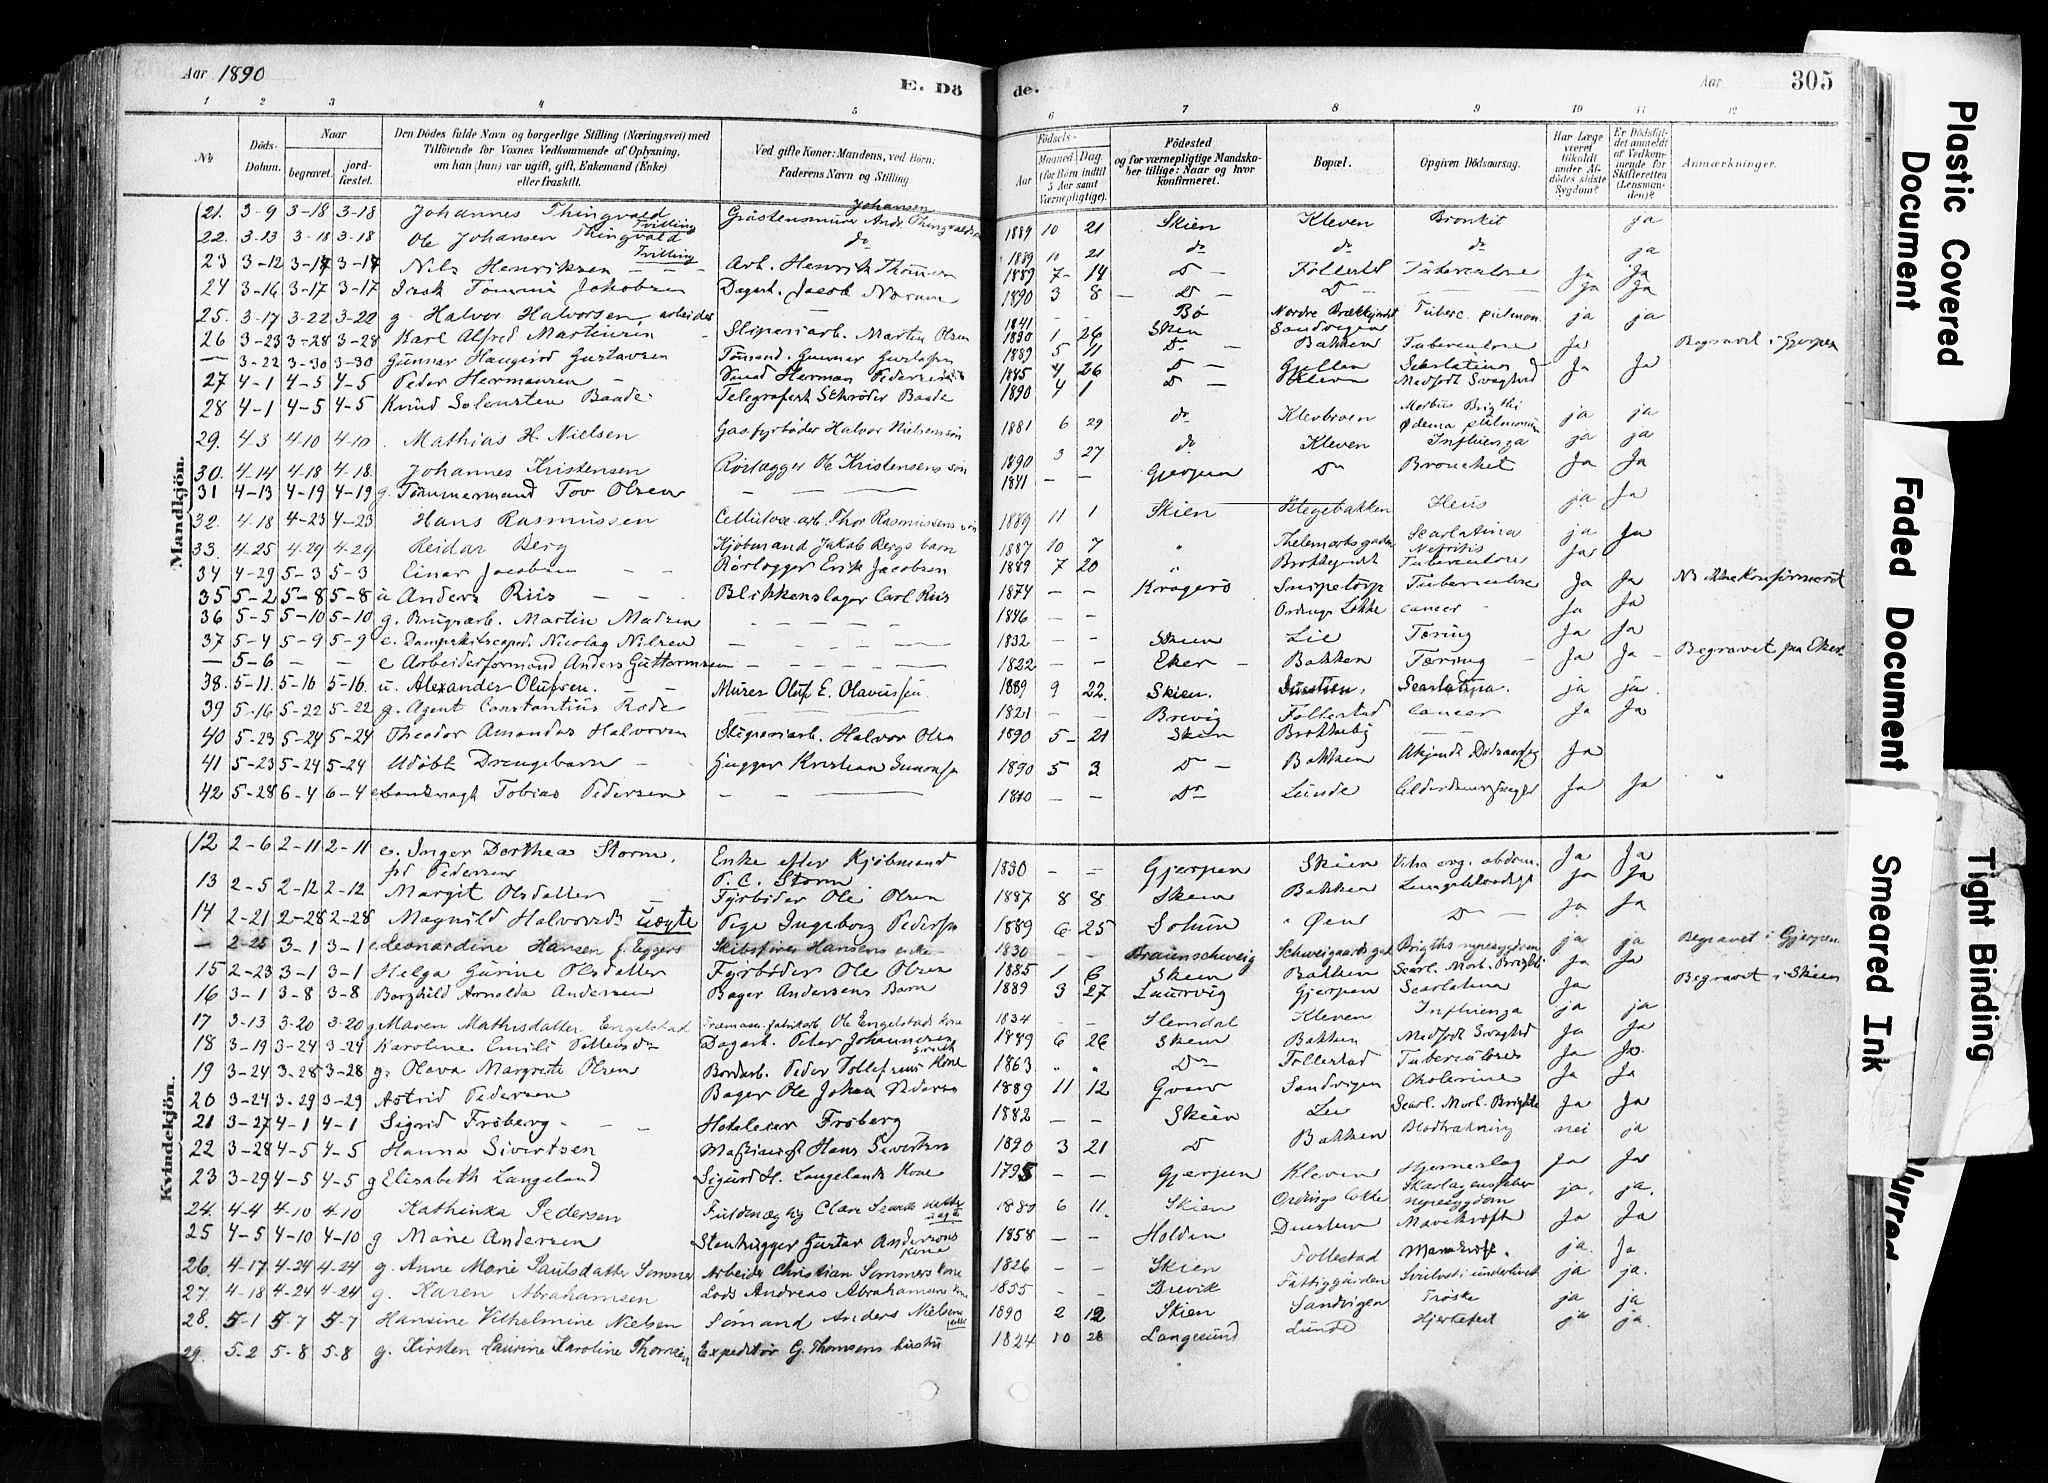 Aar 1890
E. Dö
de.
Aar
305
1 2 3 4 5 6 7 8 9 10 11 12
No
Döds-Datum.
Naar
begravet.
jord-fæstet.
Den Dödes fulde Navn og borgerlige Stilling (Næringsvei) med
Tilföiende for Voxnes Vedkommende af Oplysning,
om han (hun) var ugift, gift, Enkemand (Enke)
eller fraskilt.
Ved gifte Koner: Mandens, ved Börn:
Faderens Navn og Stilling
Födsels-
Aar
Maaned
Dag.
(for Börn indtil
5 Aar samt
Værnepligtige).
Födested
og for værnepligtige Mandska-
ber tillige: Naar og hvor
konfirmeret.
Bopæl.
Opgiven Dödsaarsag.
Har Læge
været
tilkaldt
under Af-
dödes sidste
Sygdom?
Er Dödsfal-
det anmeldt
af Vedkom-
mende for
Skifteretten
(Lensman-
den)?
Anmærkninger.
Mandkjön.
21. 3-9 3-18 3-18 Johannes Thingvald Tvilling Gråstensmurer Andr. Johansen 1889 10 21 Skien Kleven Bronkit ja
22. 3-13 3-18 3-18 Ole Johansen Thingvald Tvilling do 1889 10 21 do do do ja
23 3-12 3-17 3-17 Nils Henriksen Arb. Henrik 1889 7 14 D Follestad Tuberculose Ja Ja
24 3-16 3-17 3-17 Jakobsen Dagarb. Jacob 1890 3 8 D D Ja Ja
25. 3-17 3-22 3-22 g. Halvor Halvorsen, arbeider 1841 Bø Nordre Tuberc. pulmon. ja ja
26 3-23 3-28 3-28 Karl Alfred Martinsen Sliperiarb. Martin Olsen 1890 1 26 Skien Sandvigen
3-22 3-30 3-30 Gunnar Haugiord Gustavsen Tömmand. Gunnar Gustafsen 1889 5 11 Do Bakken Tuberculose Ja Begravet i Gjerpen
27 4-1 4-5 4-5 Peder Hermansen Smed Herman Pedersen 1885 4 26 D Scarlatina Ja Ja
28 4-1 4-5 4-5 Knud Solensten Baade Telegrafist Schrøder Baade 1890 4 1 D Kleven Medfødt Svaghed
29. 4.3 4-10 4-10 Mathias H. Nielsen Gasfyrbøder Halvor Nielsens søn 1881 6 29 do Klevbroen Morbus Brigthi Ødema pulmonum ja ja
30. 4-14 4-18 4-18. Johannes Kristensen Rørlægger Ole Kristensens søn 1890 3 27 do Kleven Influenza ja ja
31 4-13 4-19 4-19 g. Tømmermand Tov Olsen 1841 Gjerpen Do Bronchit Ja Ja
32. 4-18 4-23 4-23 Hans Rasmussen Cellulose.arb. Thor Rasmussens søn 1889 11 1 Skien Stegebakken Ileus ja Ja
33. 4-25 4-29 4-29 Reidar Berg Kjöbmand Jakob Bergs barn 1887 10 7 " Thelemarksgaden Scarlatina Nefritis ja Ja
34 4-29 5-3 5-3 Einar Jacobsen Rörlægger Erik Jacobsen 1889 7 20 " Tuberculose Ja
35 5-2 5-8 5-8 u Anders Riis Blikkenslager Carl Riis 1874 Kragerö Snipetorp Tuberculose Ja Ja No ikke Konfirmeret
36 5-5 5-10 5-10 g. Brugsarb. Martin Madsen 1846 Ordings Løkke cancer Ja Ja
37 5-4 5-9 5-9 e. Dampskibsexped. Nicolay Nilsen 1832 Skien Lie Tæring Ja Ja
5-6 e Arbeiderformand Anders Guttormsen 1822 Eker Bakken Tæring Ja Ja Begravet paa Eker
38. 5-11. 5-16 5-16. u. Alexander Olufsen. Murer Oluf E. Olavussen 1889 9 22. Skien. Duestien. Scarlatina. ja ja.
39 5-16 5-22 5-22 g. Agent Constantius Rode 1821 Brevig Follestad Cancer Ja Ja
40 5-23 5-24 5-24 Theodor Amandus Halvorsen Sliperiarb. Halvor Olsen 1890 5 21 Skien
41 5-23 5-24 5-24 Udöbt Drengebarn Kristian Simonsen 1890 5 3 D Bakken Ukjendt Dödsaarsag Ja "
42 5-28 6-4 6-4 e. Tobias Pedersen 1810 Do Lunde Alderdomssvaghed Ja Ja
Kvindekjön.
12 2-6 2-11 2-11 e. Inger Dorthea Storm, fd Pedersen Enke efter Kjöbmand P. C. Storm 1830 Gjerpen Skien Ja Ja
13 2-5 2-12 2-12 Margit Olsdatter Fyrböder Ole Olsen 1887 8 8 Skien Bakken Ja Ja
14 2-21 2-28 2-28 Magnild Halvorsdr uægte Pige Ingeborg Pedersen 1889 6 25 Solum Øen D Ja Ja
2-25 3-1 3-1 e. Leonardine Hansen f. Eggers Skibsförer Hansens enke 1830 Braunschweig Schweigaardsgad Brigths nyresygdom ja ja Begravet i Gjerpen
15 2-23 3-1 3-1 Helga Gurine Olsdatter Fyrböder Ole Olsen 1885 1 6 Skien Bakken Scarl. Morb. Brigthi Ja Ja
16 3-1 3-8 3-8 Borghild Arnolda Andersen Bager Andersens Barn 1889 3 27 Laurvig Gjerpen Scarlatina Ja Begravet i Skien
17 3-13 3-20 3-20 g. Maren Mathisdatter Engelstad Træmassefabrikarb. Ole Engelstads Kone 1834 Slemdal Kleven Influenza ja ja
18 3-19 3-24 3-24 Karoline Emilie Dagarb. Peter Johannesen 1889 6 26 Skien Bakken Medfødt Svaghed Ja Ja
19 3-24 3-28 3-28 g. Olava Margrete Olsen Bordarb. Peder Tollefsens Kone 1863 " " Do Follestad Tuberculoses Ja Ja
20 3-24 3-29 3-29 Astrid Pedersen Bager Ole Johan Pedersen 1889 11 12 Sandvigen Cholerine Ja Ja
21 3-27 4-1 4-1 Sigrid Fröberg Hoteleier Fröberg 1882 Skien Lie Scarl. Morb. Brigthi Ja Ja
22 3-28 4-5 4-5 Hanna Sivertsen Maskinist Hans Sivertsen 1890 3 21 D Bakken nei ja
23 3-29 4-5 4-5 g Elisabeth Langeland Sigurd H. Langelands Kone 1795 Gjerpen Kleven Hjerneslag Ja Ja
24. 4-4 4-10 4-10 Kathinka Pedersen Fuldmægtig 1880 6 11. Skien Ordings løkke Skarlagensfeber nyresygdom ja. ja.
25 4-5 4-10 4-10 g Marie Andersen Stenhugger Gustav Andersens kone 1858 Holden Duestien Mavekræft Ja Ja
26. 4-17 4-24 4-24 g. Anne Marie Paulsdatter Sommer Arbeider Christian Sommers kone 1826 Skien Follestad ja. Ja
27. 4-18 4-24 4-24 g. Karen Abrahamsen Lods Andreas Abrahamsens kone 1855 Brevik Fattiggården Svulst i underlivet ja ja.
28. 5-1 5-7 5-7 Hansine Vilhelmine Nielsen Sømand Anders Nielsens datter 1890 2 12 Skien Sandvigen Trøske ja ja
29. 5-2 5-8 5-8 g. Kirsten Laurine Karoline Thomsen Expeditør G. Thomsens hustru 1824 10 28 Langesund Lunde Hjertefeil ja ja.
Plastic Covered Document
Faded Document
Smeared Ink
Tight Binding